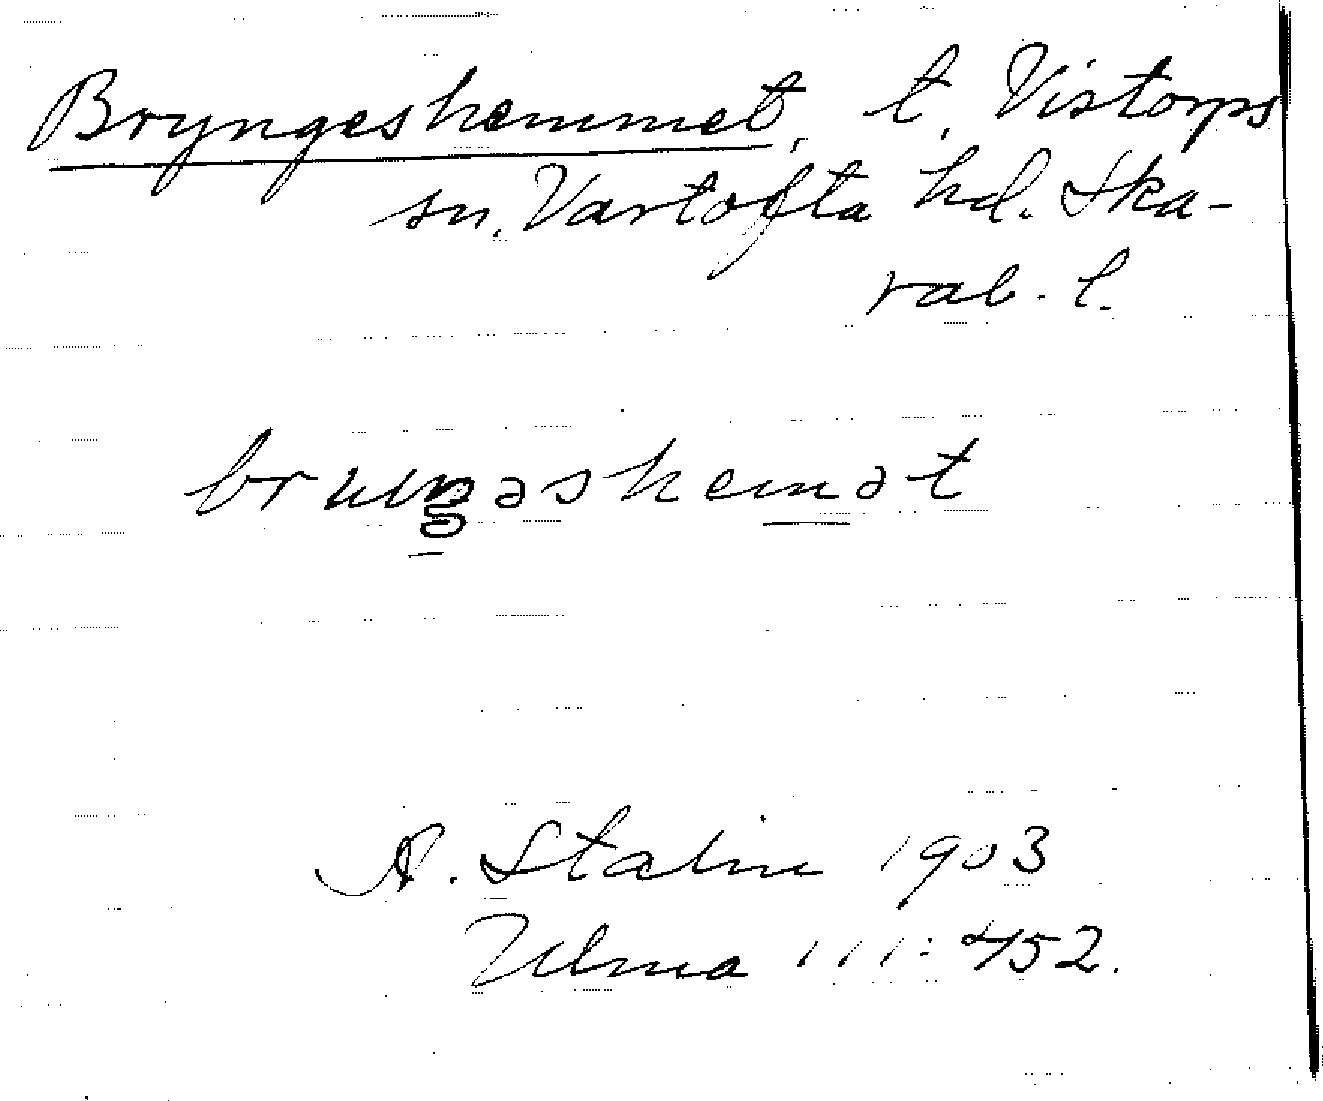 Bryngeshemmet, t. Vistorps
sn. Vartofta hd. Ska-
rab. l.
A. Stalin 1903
Ulma 111:452.